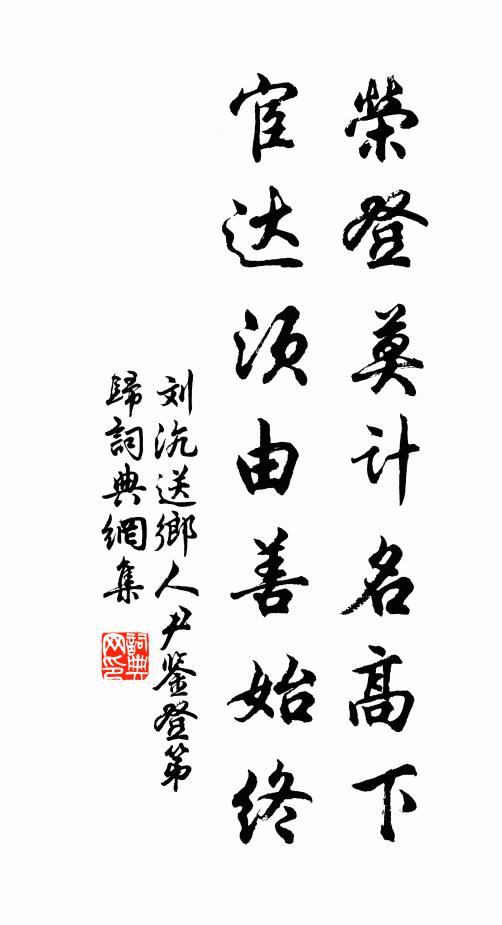 榮登莫计名高下
宦达须由善始终
刘沆送鄉人尹鉴登第
歸詞典網集
詞典网印